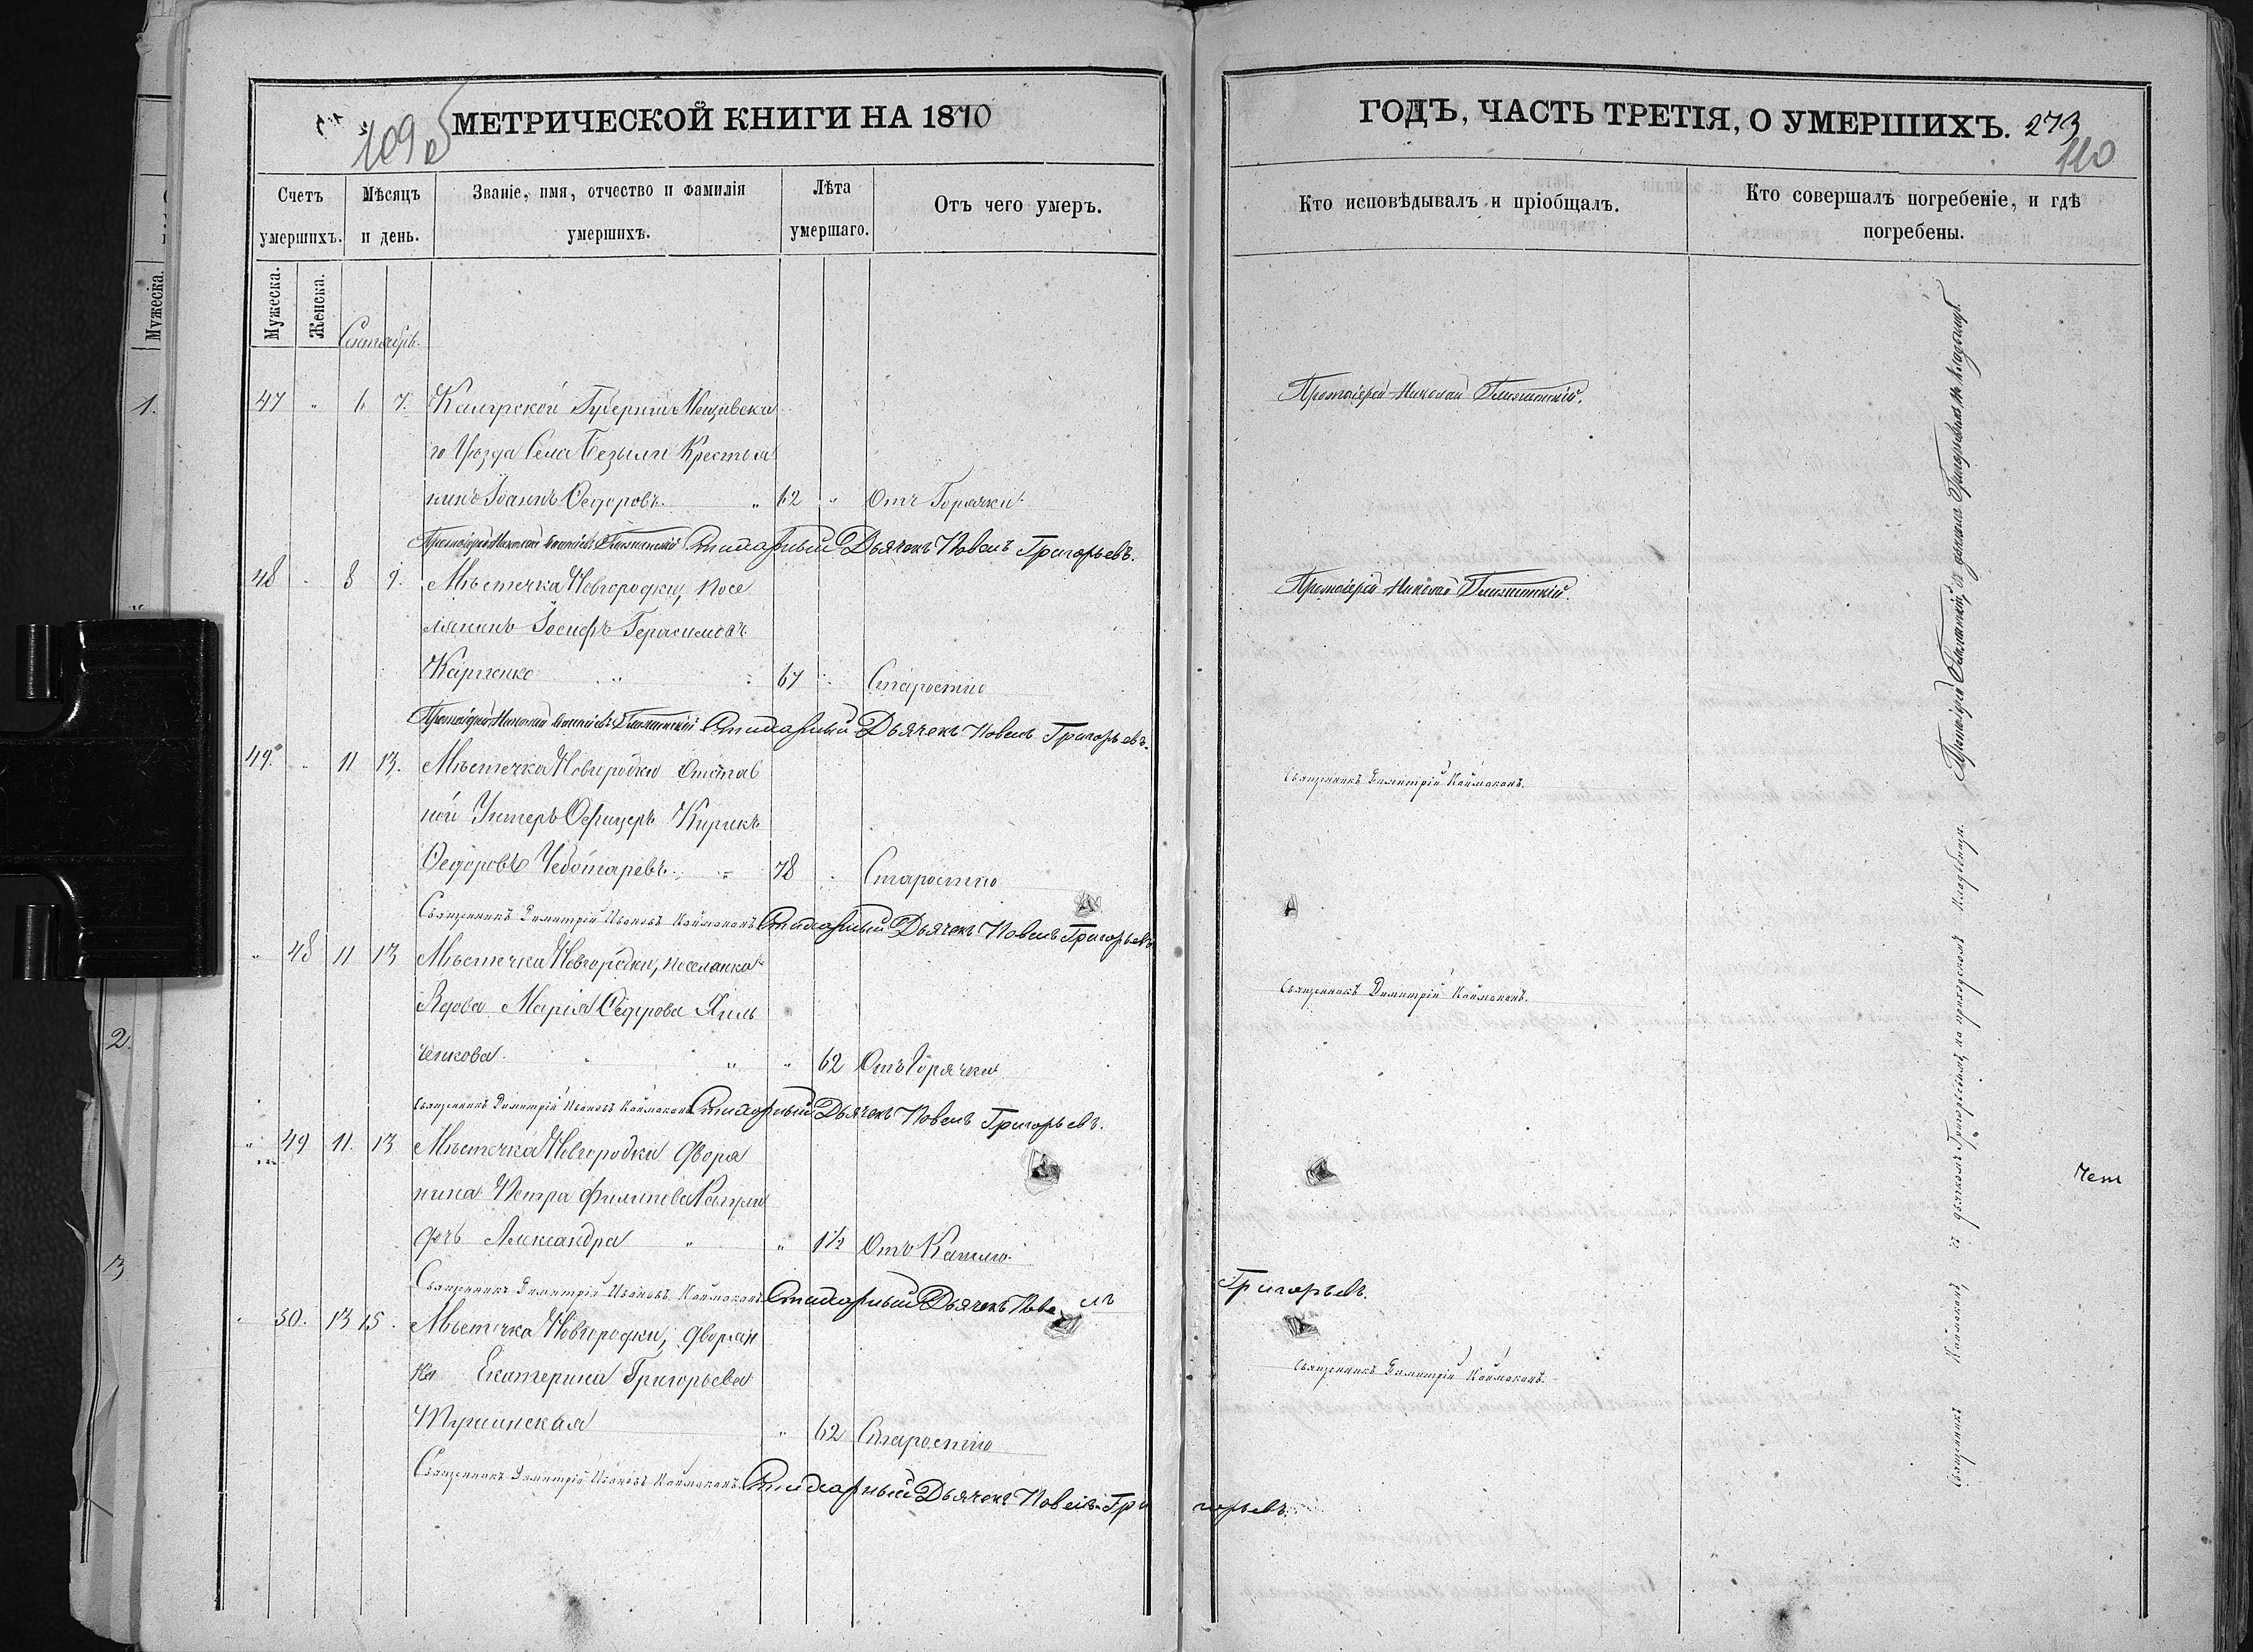 МЕТРИЧЕСКОЙ КНИГИ НА 1870
109 об
Счетъ умершихъ.
Мѣсяцъ и день.
Званіе, имя, отчество и фамилія умершихъ.
Лѣта умершаго.
Отъ чего умеръ.
Мужеска.
Женска.
Сентябрь.
47 " 6 7. Калужской Губерніи Мещевска
го Уѣзда Села Крестья
нинъ Іоаннъ Ѳедоровъ. " 62 " Отъ Горячки
Протоіерей Николай Стихарный Дьячекъ Павелъ Григорьевъ.
48 " 8 9. Мѣстечка Новгородки, посе
лянинъ Іосифъ Герасимовъ
67 " Старостію
Протоіерей Николай Стихарный Дьячекъ Павелъ Григорьевъ.
49. " 11 13. Мѣстечка Новгородки Отстав
ной Унтеръ Офицеръ Кирикъ
Ѳедоровъ Чеботаревъ. " 78 " Старостію
Священникъ Димитрій Ивановъ Каймаканъ Стихарный Дьячекъ Павелъ Григорьевъ
" 48 11 13 Мѣстечка Новгородки, поселянка
Вдова Марія Ѳедорова Хиль
ченкова " " 62 Отъ Горячки
Священникъ Димитрій Ивановъ Каймаканъ Стихарный Дьячекъ Павелъ Григорьевъ.
" 49 11. 13 Мѣстечка Новгородки Дворя
нина Петра Филипова
дочь Александра " " 1½ Отъ Кашлю
Священникъ Димитрій Ивановъ Каймаканъ Стихарный Дьячекъ Павелъ
50. 13 15. Мѣстечка Новгородки, дворян
ка Екатерина Григорьева
" 62 Старостію
Священникъ Димитрій Ивановъ Каймаканъ. Стихарный Дьячекъ Павелъ Гри
ГОДЪ, ЧАСТЬ ТРЕТІЯ, О УМЕРШИХЪ. 273
110
Кто исповѣдывалъ и пріобщалъ.
Кто совершалъ погребеніе, и гдѣ погребены.
Протоіерей Николай
Протоіерей Николай
Священникъ Димитрій Каймаканъ.
Священникъ Димитрій Каймаканъ.
Григорьевъ.
Священникъ Димитрій Каймаканъ.
горьевъ.
Священникъ Каймаканъ, съ дьячкомъ Григорьевымъ, на приходскомъ кладбищѣ.
Чет